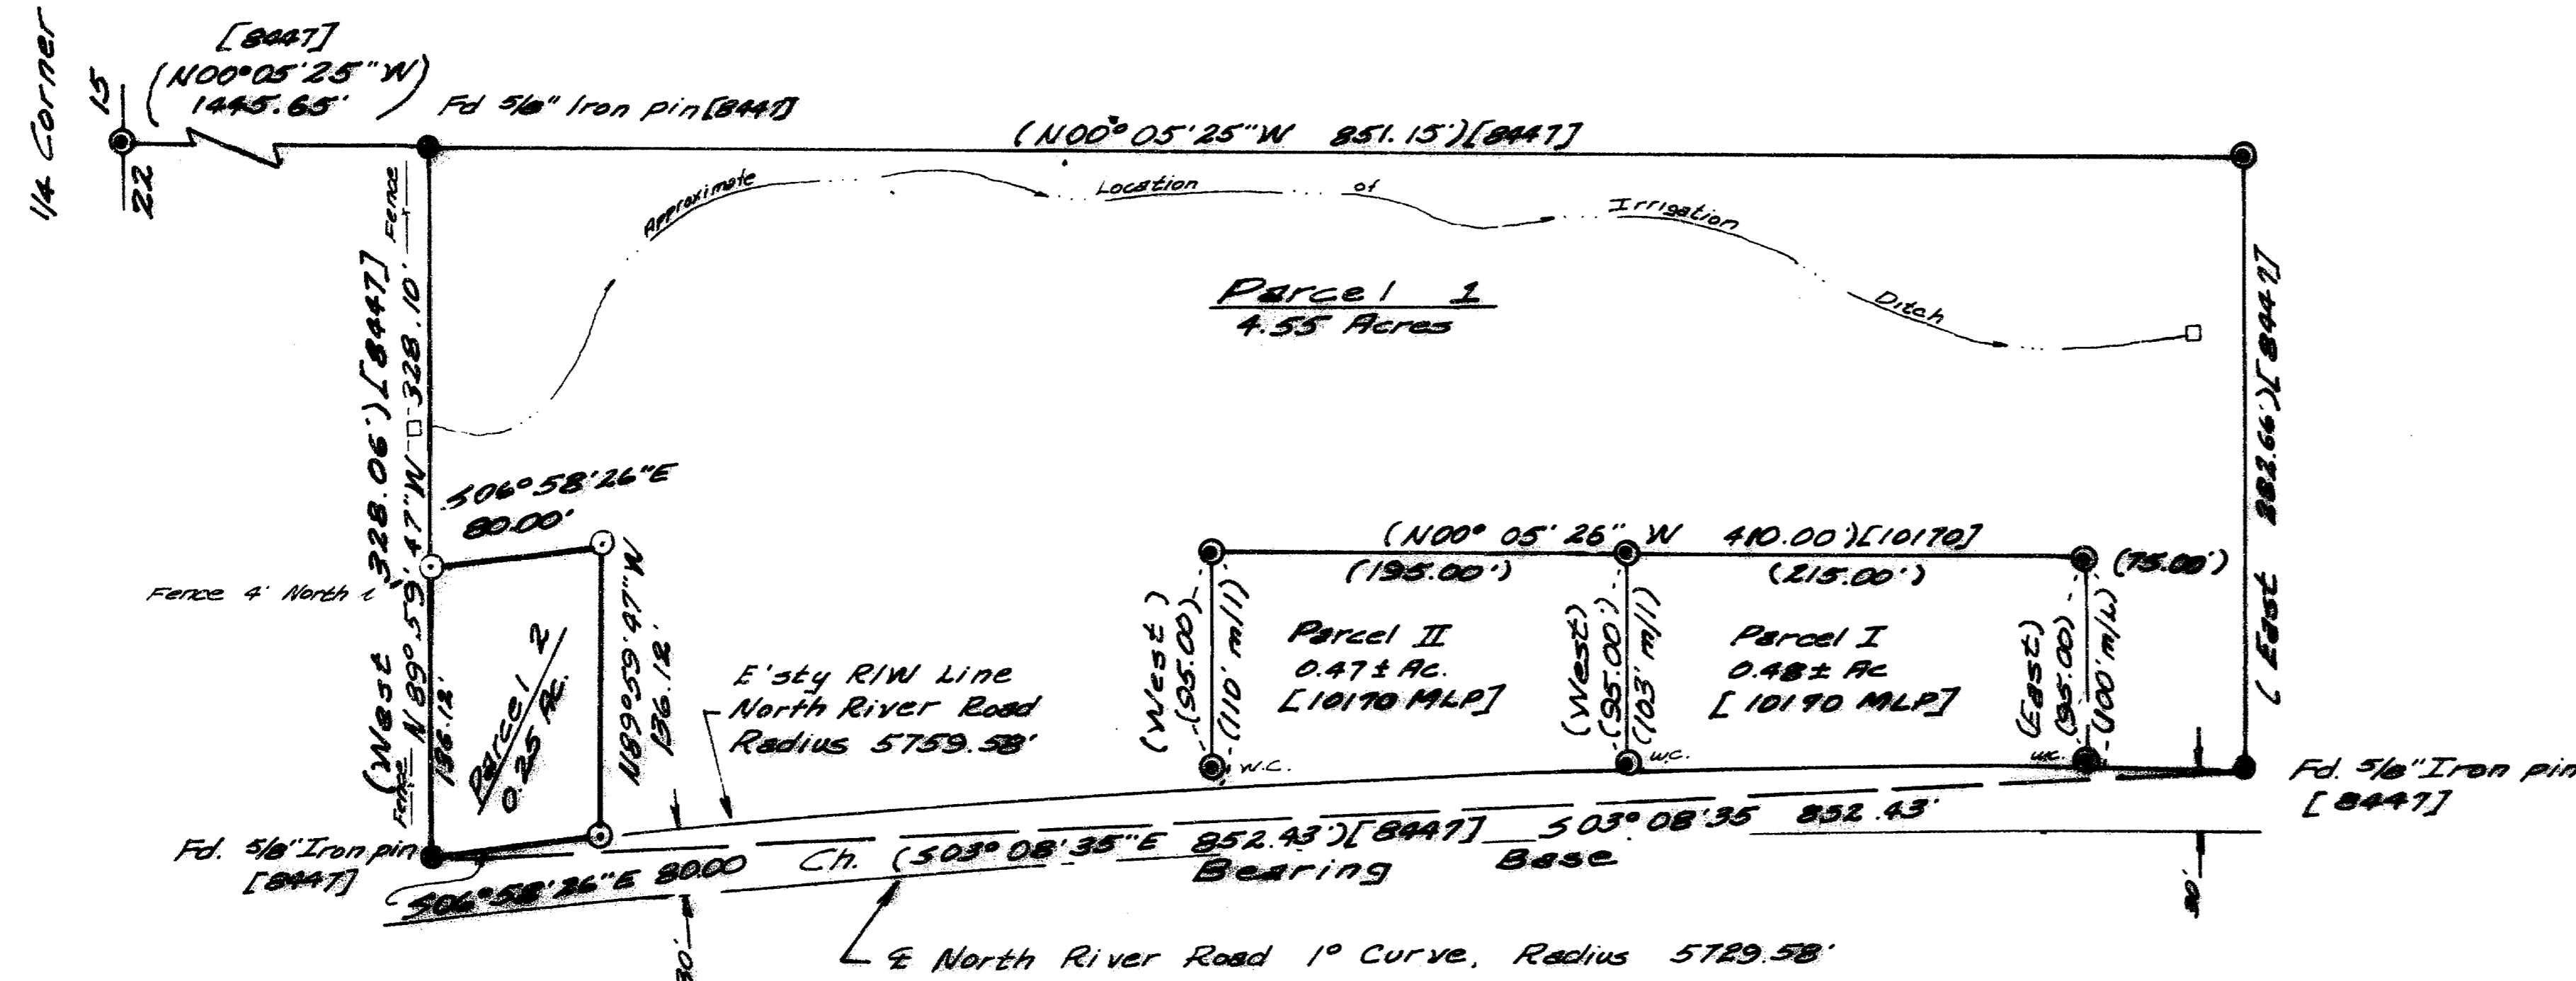 1/4 Corner
15
22
[8447]
(N00°05'25"W)
1445.65'
Fd 5/8" Iron pin [8447]
(N00°05'25"W 851.15')[8447]
Approximate Location of Irrigation Ditch
Parcel 1
4.55 Acres
Fence
(West 328.06')[8447]
N89°59'47"W 328.10'
S06°58'26"E
80.00'
Fence 4' North
136.12'
Fence
Parcel 2
0.25 Ac.
N89°59'47"W
136.12'
E'sty R/W Line
North River Road
Radius 5759.58'
(N00°05'25"W 410.00')[10170]
(195.00')
(215.00')
(75.00')
(West)
(95.00)
(110' m/l)
Parcel II
0.47± Ac.
[10170 MLP]
(West)
(95.00')
(103' m/l)
Parcel I
0.48± Ac
[10170 MLP]
(East)
(95.00)
(100' m/l)
W.C.
w.c.
w.c.
(East )[8447]
Fd. 5/8" Iron pin
[8447]
Fd. 5/8" Iron pin
[8447]
S06°58'26"E 80.00
Ch. (S03°08'35"E 852.43')[8447] S03°08'35 852.43'
Bearing Base
30'
30'
℄ North River Road 1° Curve, Radius 5729.58'